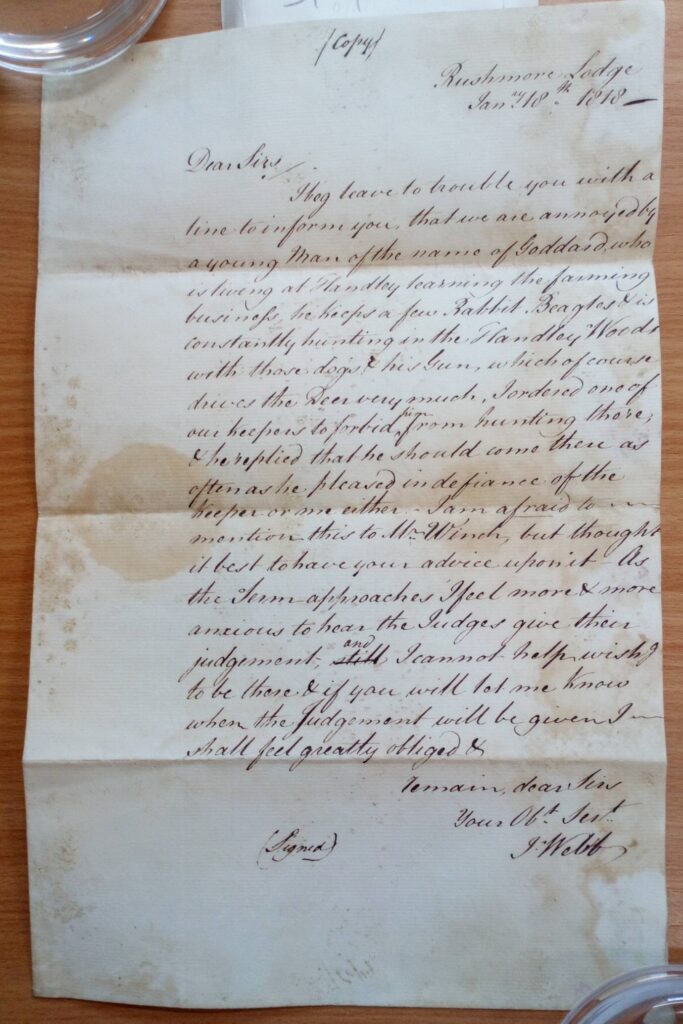 (Copy)
Rushmore Lodge
Jany 18th 1818
Dear Sirs
I beg leave to trouble you with a
line to inform you, that we are annoyed by
a young Man of the name of Goddard, who
is living at Handley learning the farming
business, he keeps a few Rabbit Beagles & is
constantly hunting in the Handley Woods
with those dogs & his Gun, which of course
drives the Deer very much, I ordered one of
our keepers to forbid him from hunting there,
& he replied that he should come there as
often as he pleased in defiance of the
keeper or me either - I am afraid to
mention this to Mr. Winch, but thought
it best to have your advice upon it - As
the Term approaches I feel more & more
anxious to hear the Judges give their
judgement, still and I cannot help wishg
to be there & if you will let me know
when the Judgement will be given I
shall feel greatly obliged &
remain, dear Sirs
Your Obt. Servt.
(Signed) J. Webb